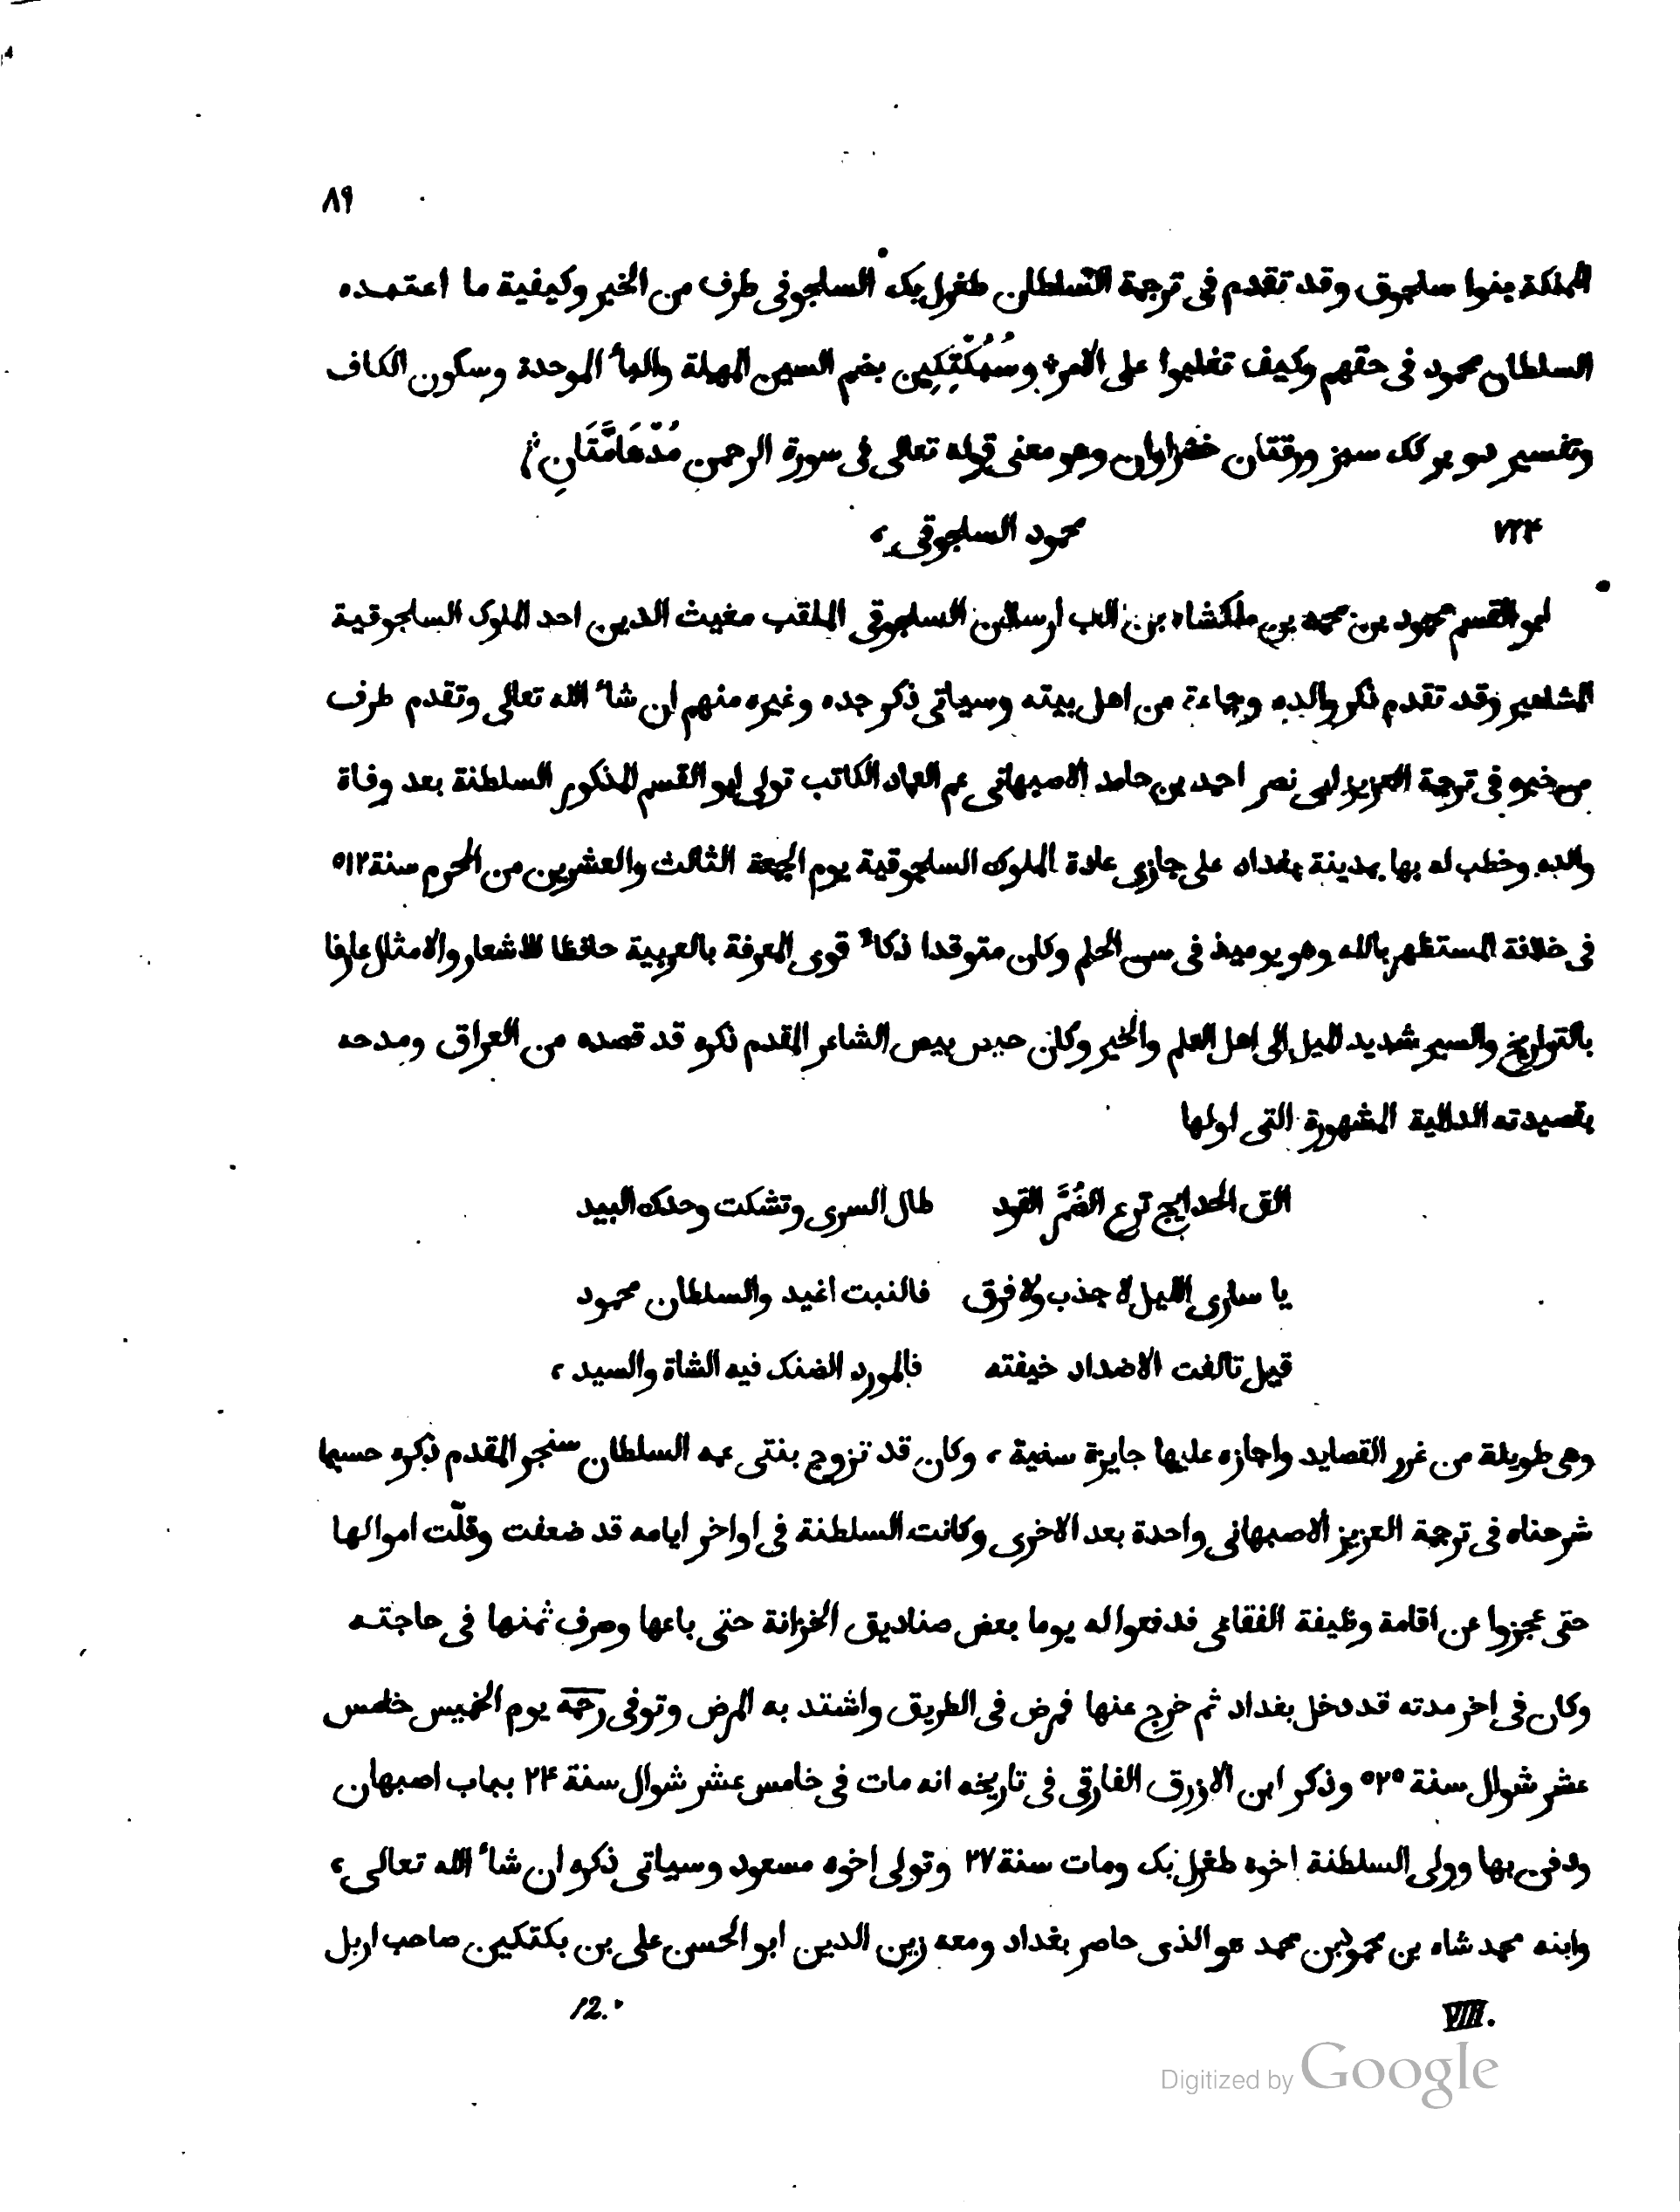 ٨٩
المملكة بنوا سلجوق وقد تقدم فى ترجمة السلطان طغرلبك السلجوقى طرف من الخبر وكيفية ما اعتمده
السلطان محمود فى حقهم وكيف تغلبوا على الامر، وسُبُكْتِكِين بضم السين المهملة والباء الموحدة وسكون الكاف
وتفسير دو بركك سبز ورقتان خضراوان وهو معنى قوله تعالى فى سورة الرحمن مُدْهَامَّتَانِ
٧٢٤ محمود السلجوقى،
ابو القسم محمود بن محمد بن ملكشاه بن الب ارسلان السلجوقى الملقب مغيث الدين احد الملوك السلجوقية
المشاهير وقد تقدم ذكر والده وجماعة من اهل بيته وسياتى ذكر جده وغيره منهم ان شاء الله تعالى وتقدم طرف
من خبره فى ترجمة العزيز ابى نصر احمد بن حامد الاصبهانى عم العماد الكاتب تولى ابو القسم المذكور السلطنة بعد وفاة
والده وخطب له بها بمدينة بغداد على جارى عادة الملوك السلجوقية يوم الجمعة الثالث والعشرين من المحرم سنة ٥١٢
فى خلافة المستظهر بالله وهو يوميذ فى سن الحلم وكان متوقدا ذكاء قوى المعرفة بالعربية حافظا للاشعار والامثال عارفا
بالتواريخ والسير شديد الميل الى اهل العلم والخير وكان حيص بيص الشاعر المقدم ذكره قد قصده من العراق ومدحه
بقصيدته الدالية المشهورة التى اولها
الق الحدايج ترع الضُمَّر القود طال السرى وتشكت وخدك البيد
يا سارى الليل لا جذب ولا فرق فالنبت اغيد والسلطان محمود
قيل تالفت الاضداد خيفته فالمورد الضنك فيه الشاة والسيد،
وهى طويلة من غرر القصايد واجازه عليها جايزة سنية، وكان قد تزوج بنتى عمه السلطان سنجر المقدم ذكره حسبما
شرحناه فى ترجمة العزيز الاصبهانى واحدة بعد الاخرى وكانت السلطنة فى اواخر ايامه قد ضعفت وقلّت اموالها
حتى عجزوا عن اقامة وظيفة الفقاعى فدفعوا له يوما بعض صناديق الخزانة حتى باعها وصرف ثمنها فى حاجته
وكان فى اخر مدته قد دخل بغداد ثم خرج عنها فمرض فى الطريق واشتد به المرض وتوفى رحمه يوم الخميس خامس
عشر شوال سنة ٥٢٥ وذكر ابن الازرق الفارقى فى تاريخه انه مات فى خامس عشر شوال سنة ٢٤ بباب اصبهان
ودفن بها وولى السلطنة اخوه طغرلبك ومات سنة ٢٧ وتولى اخوه مسعود وسياتى ذكره ان شاء الله تعالى،
وابنه محمد شاه بن محمود بن محمد هو الذى حاصر بغداد ومعه زين الدين ابو الحسن على بن بكتكين صاحب اربل
VIII. 12.
Digitized by Google